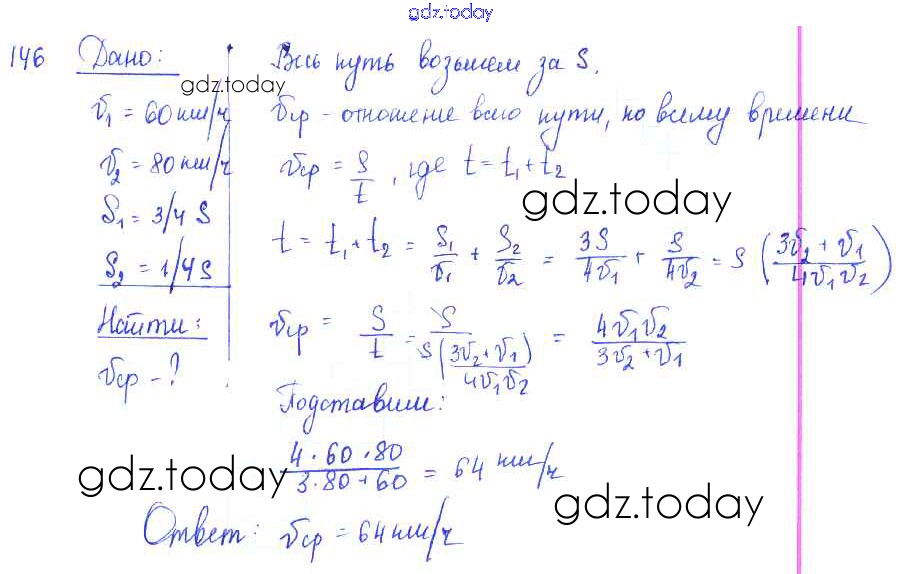 gdz.today
146 Дано:
gdz.today
v₁ = 60 км/ч
v₂ = 80 км/ч
S₁ = 3/4 S
S₂ = 1/4 S
Найти:
vср - ?
Весь путь возьмем за S.
vср - отношение всего пути, ко всему времени
vср = S/t, где t = t₁ + t₂
gdz.today
t = t₁ + t₂ = S₁/v₁ + S₂/v₂ = 3S/4v₁ + S/4v₂ = S ((3v₂ + v₁)/(4v₁v₂))
vср = S/t = S/(S((3v₂ + v₁)/(4v₁v₂))) = 4v₁v₂/(3v₂ + v₁)
Подставим:
(4·60·80)/(3·80+60) = 64 км/ч
gdz.today
gdz.today
Ответ: vср = 64 км/ч